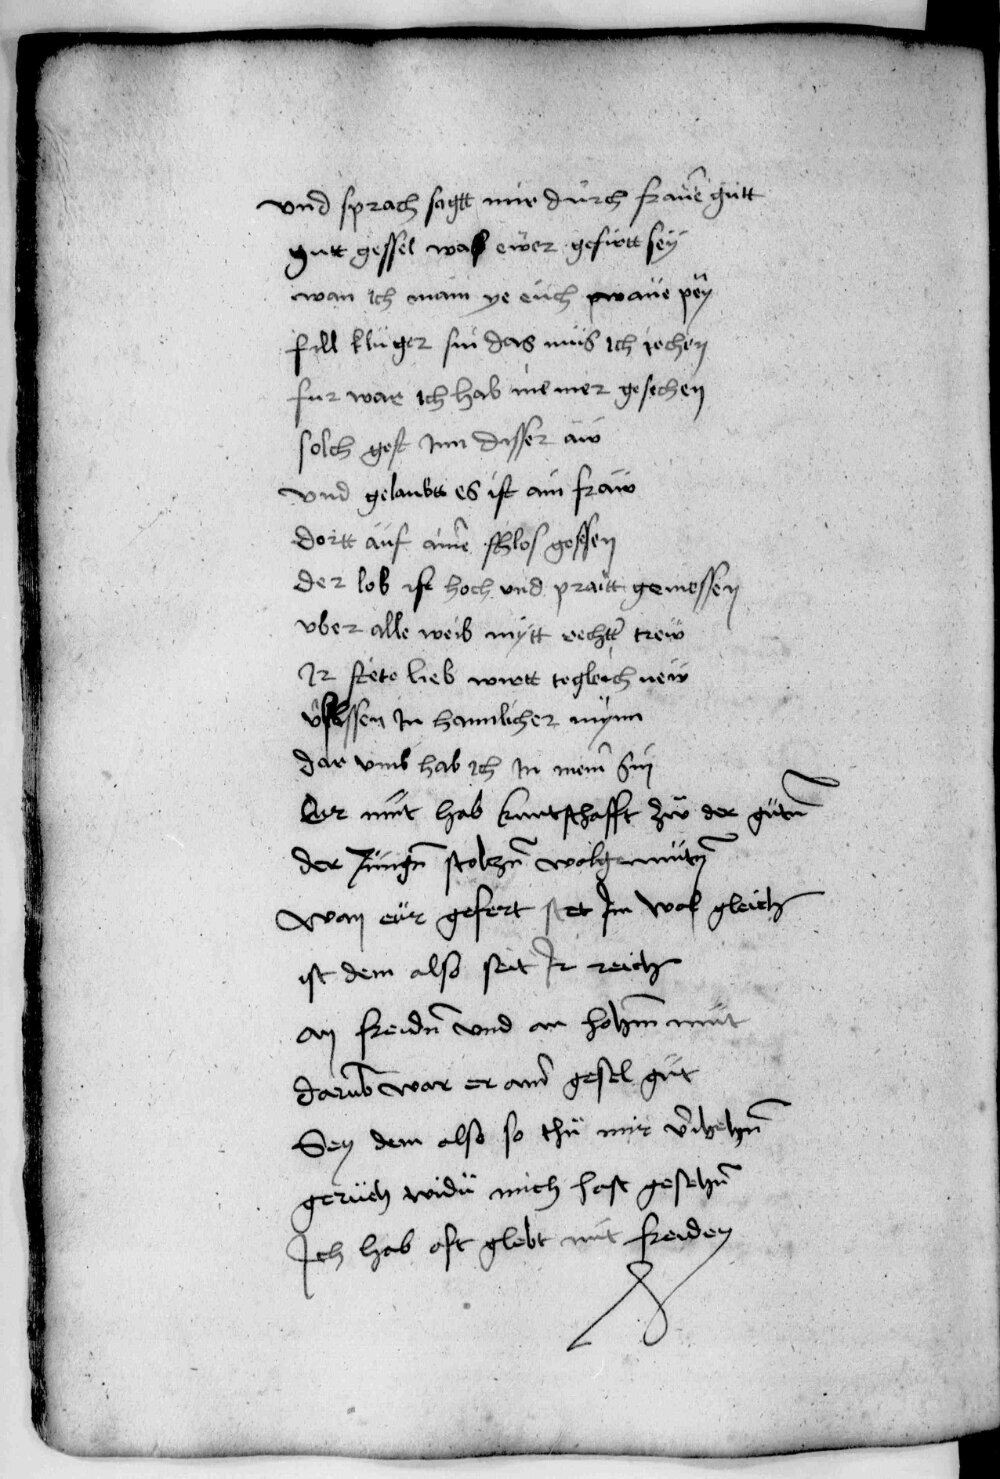 vnd sprach sagtt mir dürch fraüe gütt
gutt gessel was ewer gefirtt seÿ
wan ich main ye eüch pwaüe peÿ
fill klüger sin das müs ich iechen
fur war ich hab niemer gesechen
solch gest Inn disser äw
vnd gelaubtt es ist ain fräw
dortt aüf aime schlos gesessen
der lob ist hoch vnd praitt gemessen
vber alle weib mÿtt rechtt trew
Ir stete lieb wirtt tegleich new
In haimlicher mÿnn
dar vmb hab ich In meim sin
Er müt hab kuntschafft zw der gütn
der Jüngn stolczn wolgemütn
Wan eür gefert stet Im wol gleich
ist dem also seit Ir reich
an freidn vnd an hohm müt
darumb war er aim gesel güt
Seÿ dem also so thü mir
gerüch widü mich hast gesehn
Ich hab oft glebt mit freiden